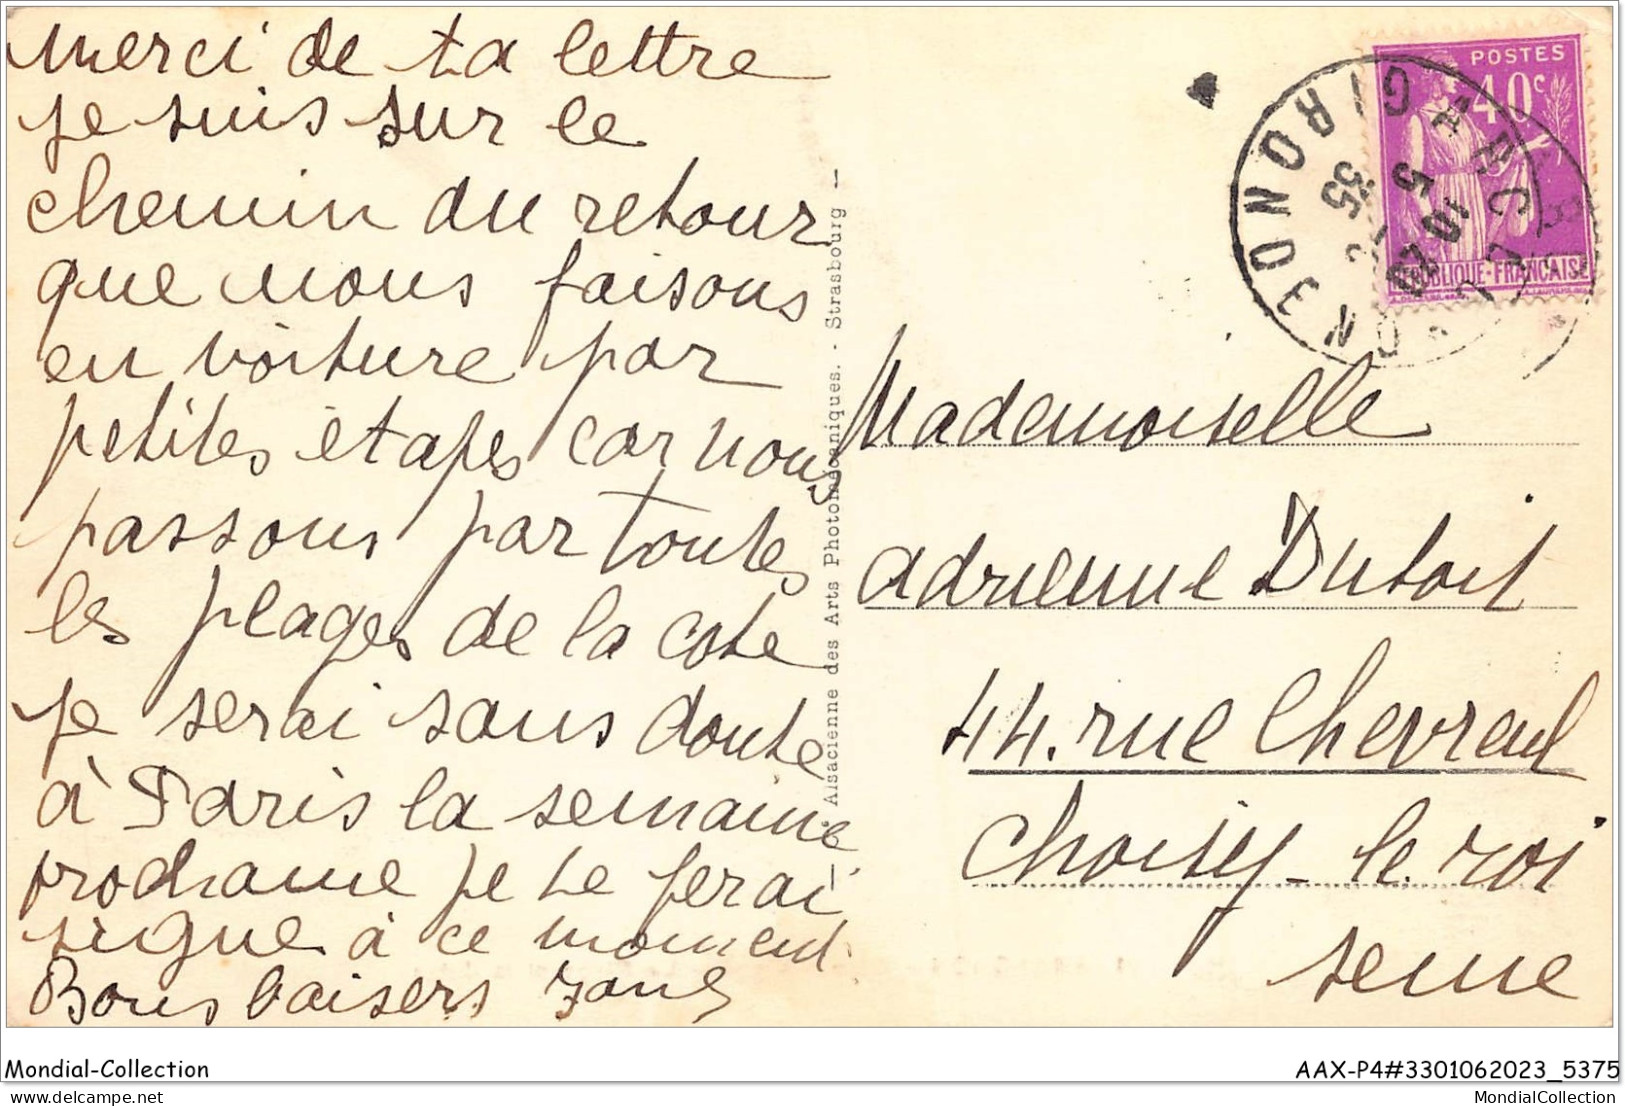 merci de ta lettre
je suis sur le
chemin du retour
que nous faisons
en voiture par
petites étapes car nous
passons par toutes
les plages de la cote
je serai sans doute
à Paris la semaine
prochaine je te ferai
signe à ce moment
Bons baisers
Alsacienne des Arts Photomécaniques. - Strasbourg -
POSTES
40c
REPUBLIQUE-FRANÇAISE
ARCACHON
GIRONDE
5 10
35
Mademoiselle
Adrienne Dutoit
44. rue Chevreul
Choisy-le-roi
seine
Mondial-Collection
AAX-P4#3301062023_5375
MondialCollection